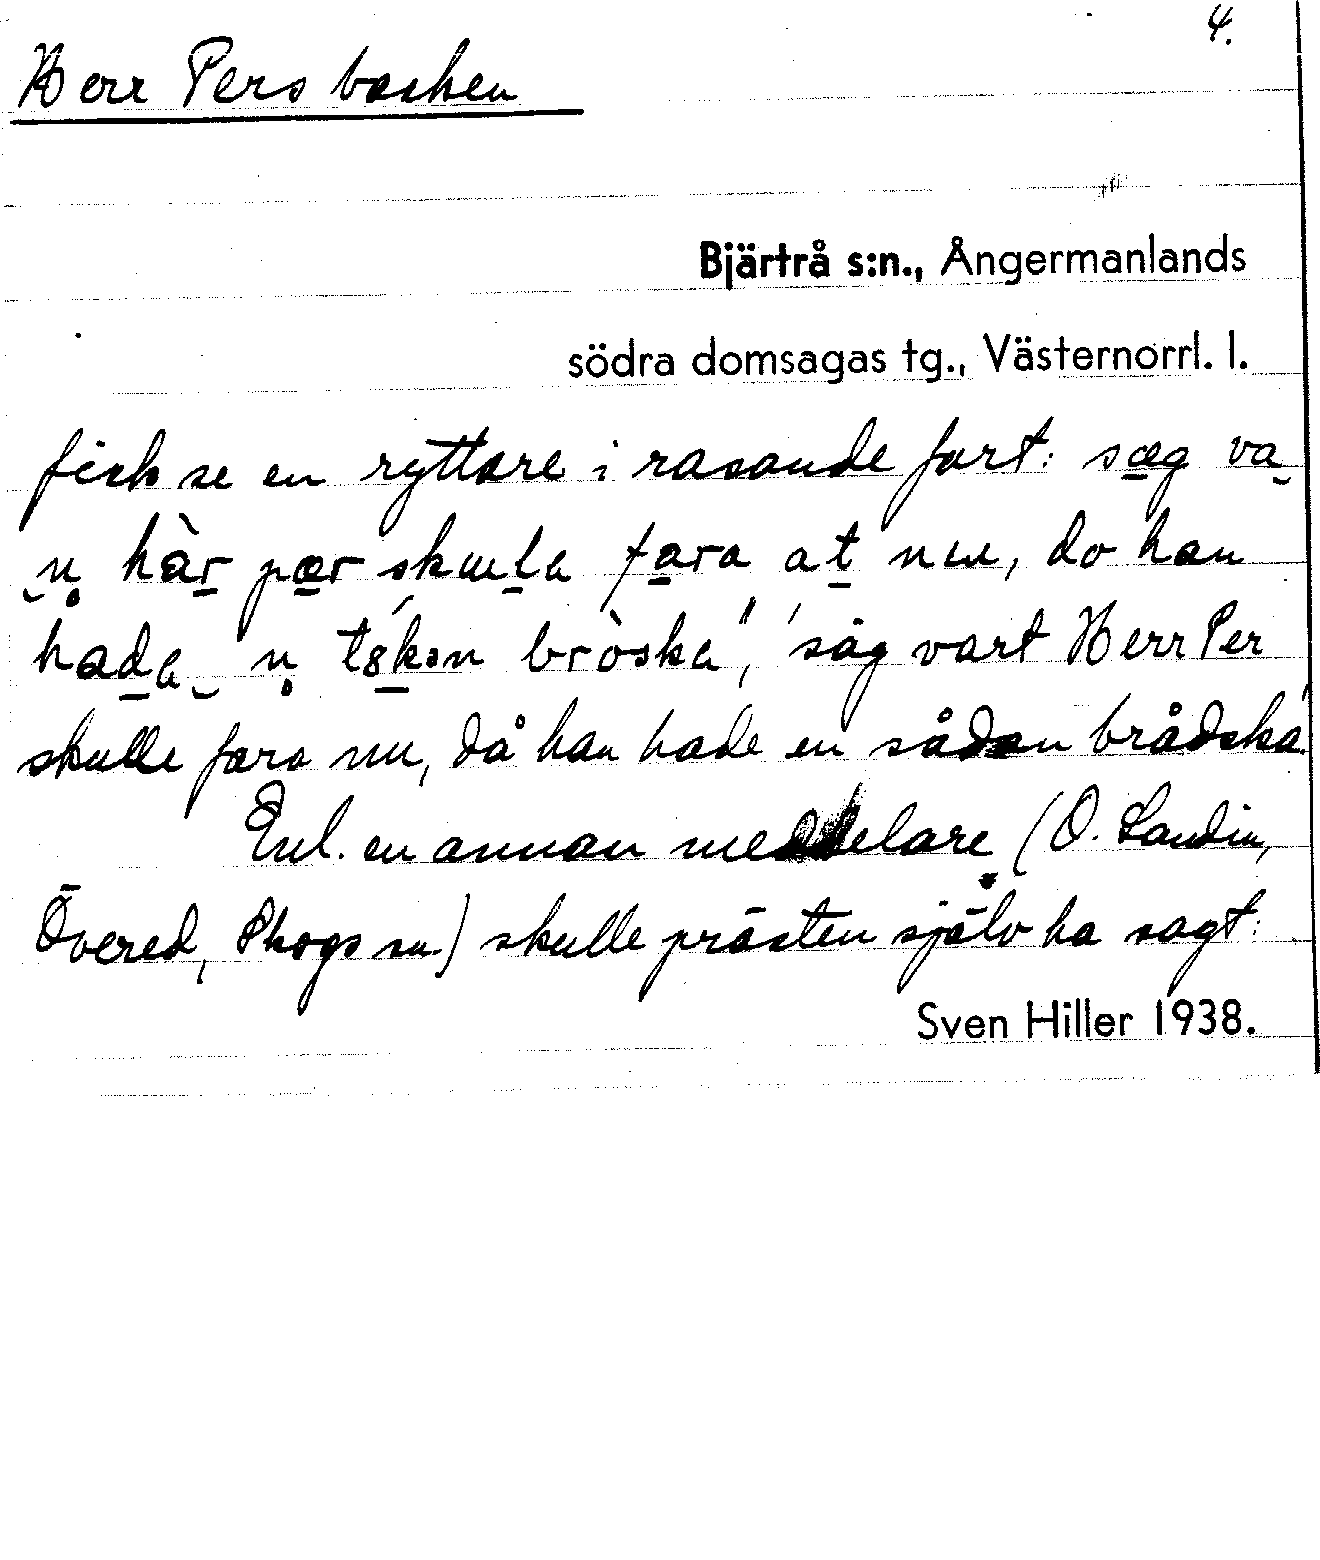 4.
Herr Pers backen
Bjärtrå s:n., Ångermanlands
södra domsagas tg., Västernorrl. l.
fick se en ryttare i rasande fart: sæg va
n hàr pær skula fara at nu, do han
hada n bròska", 'säg vart Herr Per
skulle fara nu, då han hade en sådan brådska'.
Enl. en annan meddelare (O. Sandin,
Övered, Skogs sn.) skulle prästen själv ha sagt:
Sven Hiller 1938.